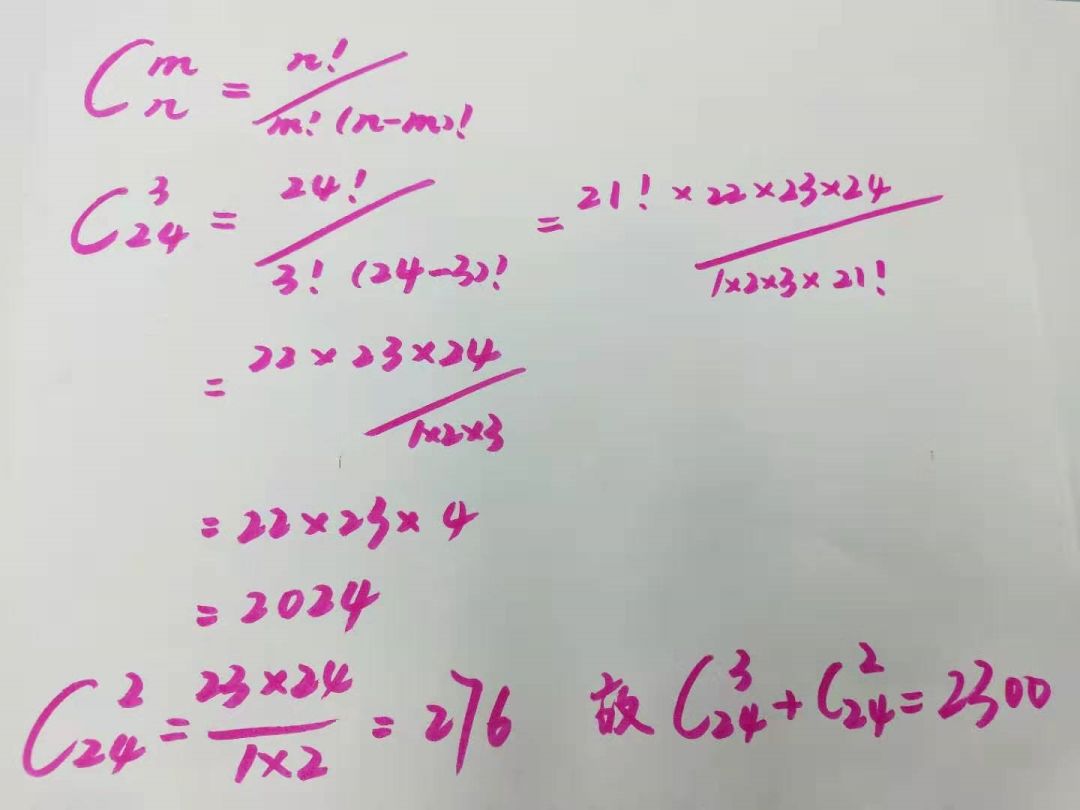 C_n^m = n! / m!(n-m)!
C_24^3 = 24! / 3!(24-3)! = 21!×22×23×24 / 1×2×3×21!
= 22×23×24 / 1×2×3
= 22×23×4
= 2024
C_24^2 = 23×24 / 1×2 = 276 故 C_24^3 + C_24^2 = 2300